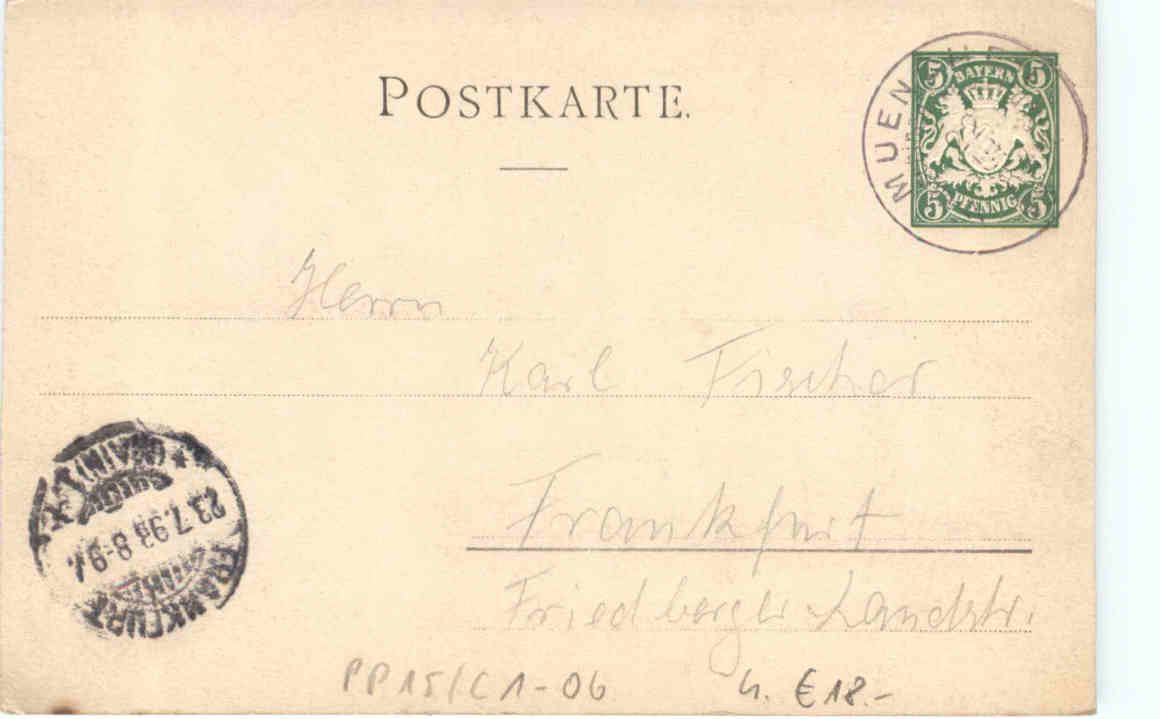 POSTKARTE.
5 BAYERN 5
5 PFENNIG 5
MUEN
Herrn
Karl Fischer
Frankfurt
Friedberger Landstr.
FRANKFURT
(MAIN)
23.7.98 8-9
PP15/C1-06
h. €18.-